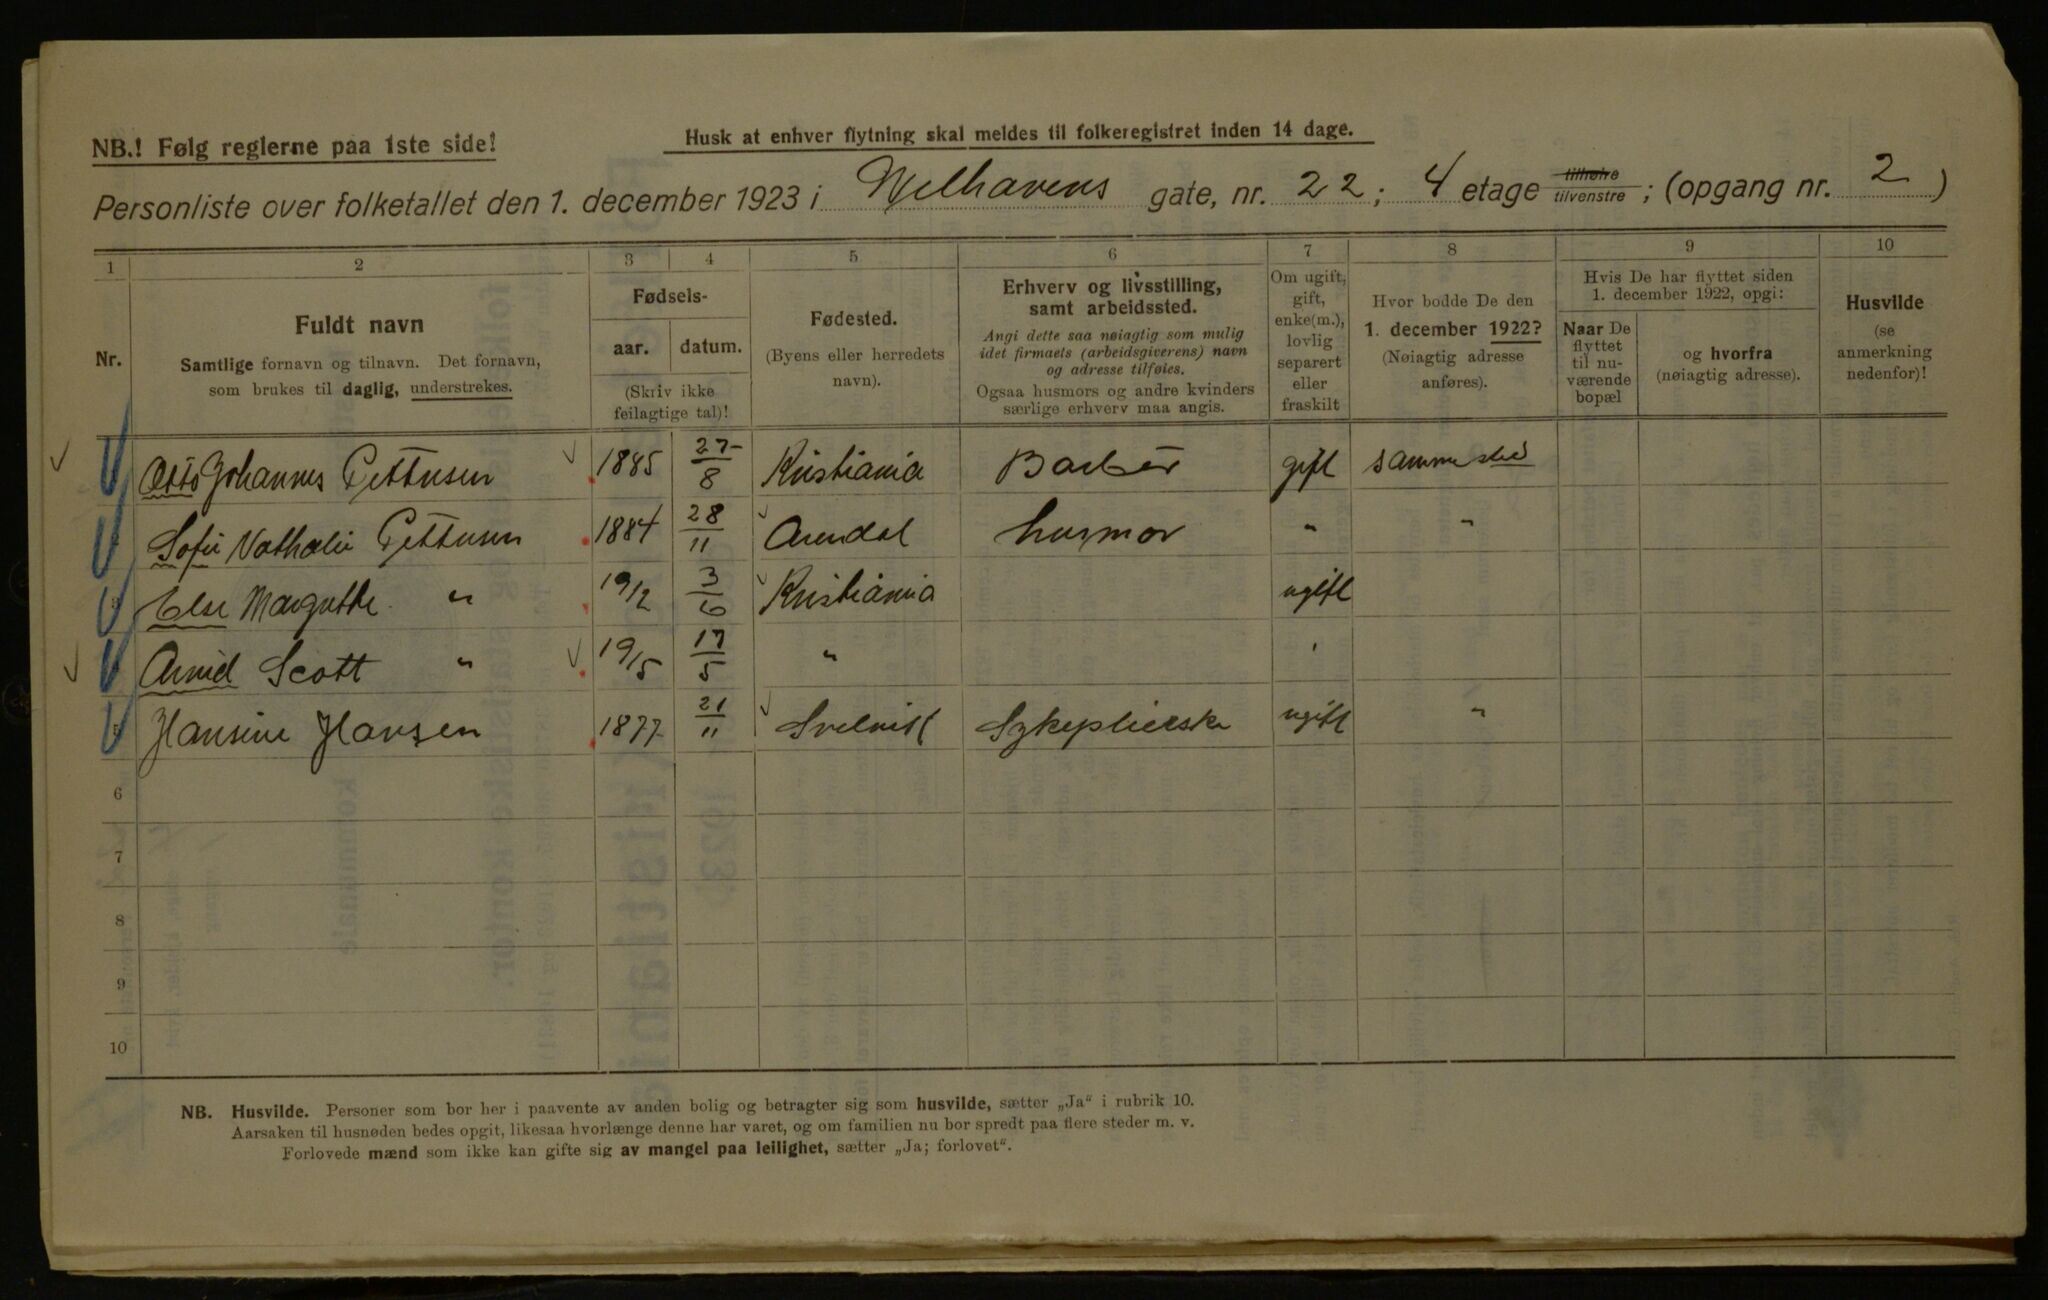 NB.! Følg reglerne paa 1ste side!
Husk at enhver flytning skal meldes til folkeregistret inden 14 dage.
Personliste over folketallet den 1. december 1923 i Welhavens gate, nr. 22; 4 etage tilhøire tilvenstre; (opgang nr. 2)
1 2 3 4 5 6 7 8 9 10
Nr.
Fuldt navn
Samtlige fornavn og tilnavn. Det fornavn,
som brukes til daglig, understrekes.
Fødsels-
aar. datum.
(Skriv ikke
feilagtige tal)!
Fødested.
(Byens eller herredets
navn).
Erhverv og livsstilling,
samt arbeidssted.
Angi dette saa nøiagtig som mulig
idet firmaets (arbeidsgiverens) navn
og adresse tilføies.
Ogsaa husmors og andre kvinders
særlige erhverv maa angis.
Om ugift,
gift,
enke(m.),
lovlig
separert
eller
fraskilt
Hvor bodde De den
1. december 1922?
(Nøiagtig adresse
anføres).
Hvis De har flyttet siden
1. december 1922, opgi:
Naar De
flyttet
til nu-
værende
bopæl
og hvorfra
(nøiagtig adresse).
Husvilde
(se
anmerkning
nedenfor)!
Otto Johannes Pettersen 1885 27/8 Kristiania Barber gift samme sted
Sofie Nathalie Pettersen 1884 28/11 Arendal husmor " "
Else Margrethe " 19/12 3/6 Kristiania ugift
Arvid Scott " 19/15 17/5 "
5 Hansine Hansen 1877 21/11 Svelvik Sykepleierske ugift "
6
7
8
9
10
NB. Husvilde. Personer som bor her i paavente av anden bolig og betragter sig som husvilde, sætter „Ja“ i rubrik 10.
Aarsaken til husnøden bedes opgit, likesaa hvorlænge denne har varet, og om familien nu bor spredt paa flere steder m. v.
Forlovede mænd som ikke kan gifte sig av mangel paa leilighet, sætter „Ja; forlovet“.